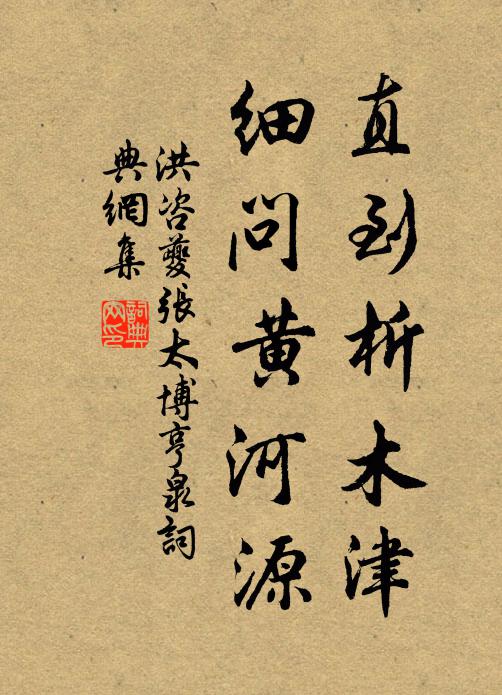 直到析木津
細問黄河源
洪咨夔張太博亨泉詞
典網集
詞典
网印